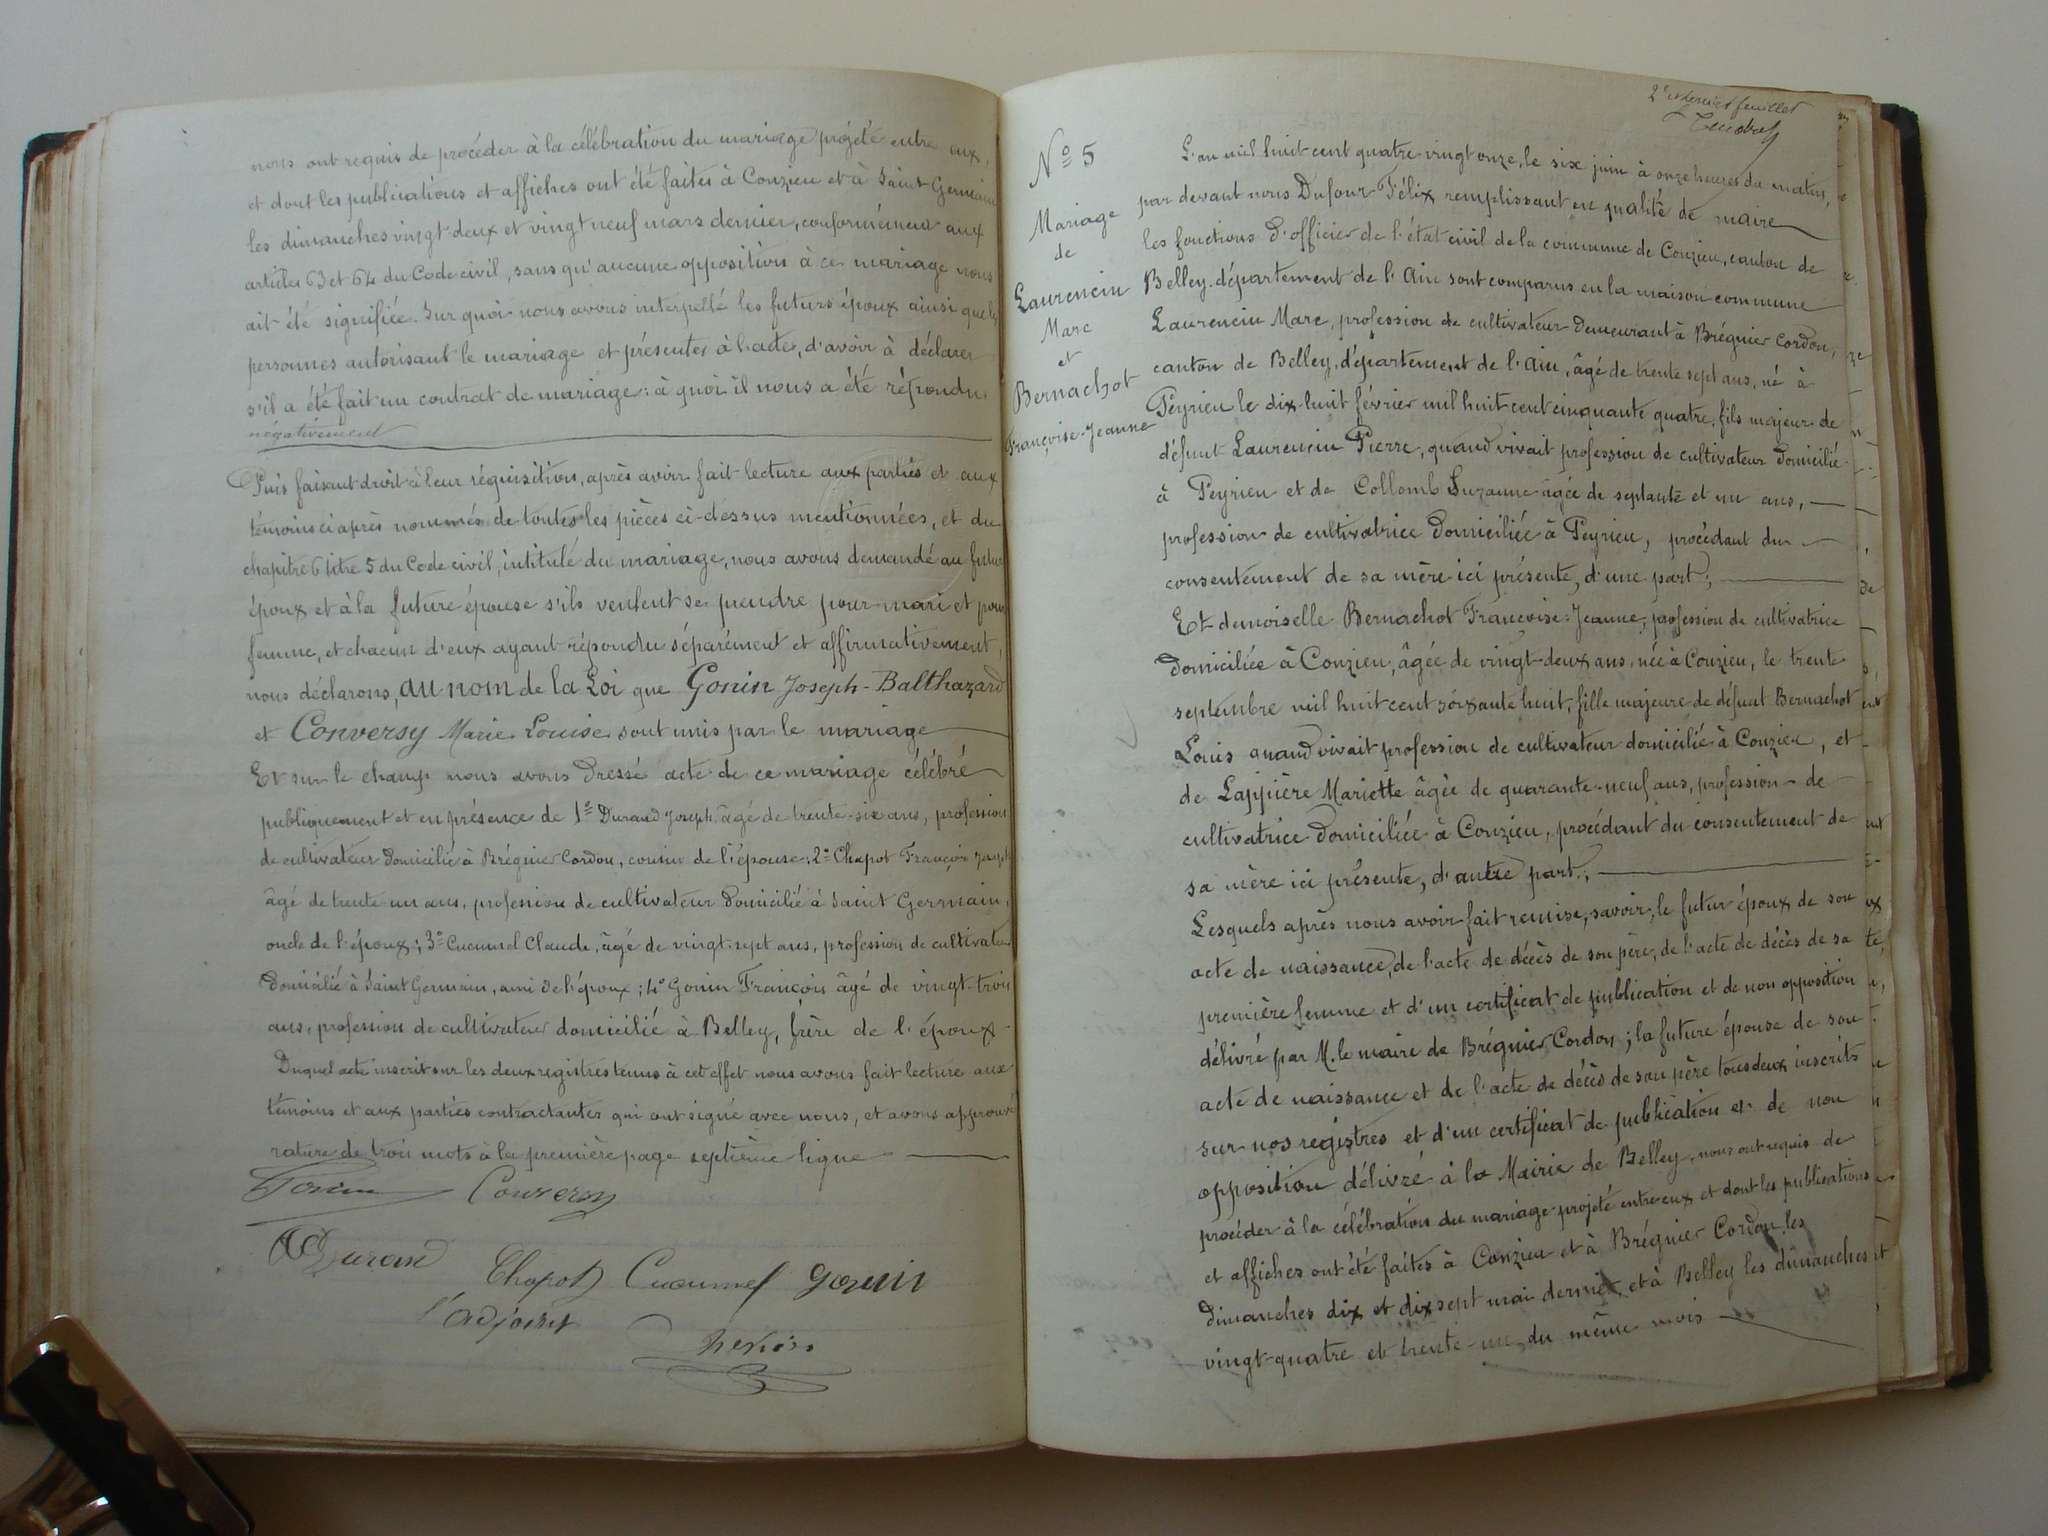 nous ont requis de procéder à la célébration du mariage projeté entre eux,
et dont les publications et affiches ont été faites à Conzieu et à Saint-Germain
les dimanches vingt-deux et vingt neuf mars dernier, conformément aux
articles 63 et 64 du Code civil, sans qu'aucune opposition à ce mariage nous
ait été signifiée. Sur quoi nous avons interpellé les futurs époux ainsi que les
personnes autorisant le mariage et présentes à l'acte, d'avoir à déclarer
s'il a été fait un contrat de mariage : à quoi il nous a été répondu
négativement
Puis faisant droit à leur réquisition, après avoir fait lecture aux parties et aux
témoins ci après nommés de toutes les pièces ci-dessus mentionnées, et du
chapitre 6 titre 5 du Code civil, intitulé du mariage, nous avons demandé au futur
époux et à la future épouse s'ils veulent se prendre pour mari et pour
femme, et chacun d'eux ayant répondu séparément et affirmativement,
nous déclarons, au nom de la Loi que Gonin Joseph-Balthazard
et Conversy Marie Louise sont unis par le mariage
Et sur le champ nous avons dressé acte de ce mariage célébré
publiquement et en présence de 1º Durand Joseph, âgé de trente-six ans, profession
de cultivateur domicilié à Brégnier Cordon, cousin de l'épouse ; 2º Chapot François Joseph
âgé de trente un ans, profession de cultivateur domicilié à Saint Germain,
oncle de l'époux ; 3º Cucumel Claude, âgé de vingt-sept ans, profession de cultivateur
domicilié à Saint Germain, ami de l'époux ; 4º Gonin François âgé de vingt-trois
ans, profession de cultivateur domicilié à Belley, frère de l'époux
Duquel acte inscrit sur les deux registres tenus à cet effet nous avons fait lecture aux
témoins et aux parties contractantes qui ont signé avec nous, et avons approuvé
rature de trois mots à la première page septième ligne
Gonin Conversy
Durand
Chapot Cucumel gonin
l'adjoint
2e et dernier feuillet
Nº 5
Mariage
de
Laurencin
Marc
et
Bernachot
Françoise-Jeanne
L'an mil huit cent quatre vingt onze, le six juin à onze heures du matin,
par devant nous Dufour Félix remplissant en qualité de maire
les fonctions d'officier de l'état civil de la commune de Conzieu, canton de
Belley, département de l'Ain sont comparus en la maison commune
Laurencin Marc, profession de cultivateur demeurant à Brégnier Cordon,
canton de Belley, département de l'Ain, âgé de trente sept ans, né à
Peyrieu le dix-huit février mil huit cent cinquante quatre, fils majeur de
défunt Laurencin Pierre, quand vivait profession de cultivateur domicilié
à Peyrieu et de Collomb Suzanne âgée de septante et un ans,
profession de cultivatrice domiciliée à Peyrieu, procédant du
consentement de sa mère ici présente, d'une part ;
Et demoiselle Bernachot Françoise-Jeanne, profession de cultivatrice
domiciliée à Conzieu, âgée de vingt-deux ans, née à Conzieu, le trente
septembre mil huit cent soixante huit, fille majeure de défunt Bernachot
Louis quand vivait profession de cultivateur domicilié à Conzieu, et
de Lappière Mariette âgée de quarante-neuf ans, profession de
cultivatrice domiciliée à Conzieu, procédant du consentement de
sa mère ici présente, d'autre part ;
Lesquels après nous avoir fait remise, savoir, le futur époux de son
acte de naissance, de l'acte de décès de son père, de l'acte de décès de sa
première femme et d'un certificat de publication et de non opposition
délivré par M. le maire de Brégnier Cordon ; la future épouse de son
acte de naissance et de l'acte de décès de son père tous deux inscrits
sur nos registres et d'un certificat de publication et de non
opposition délivré à la Mairie de Belley, nous ont requis de
procéder à la célébration du mariage projeté entre eux et dont les publications
et affiches ont été faites à Conzieu et à Brégnier Cordon les
dimanches dix et dix sept mai dernier, et à Belley les dimanches
vingt-quatre et trente-un du même mois